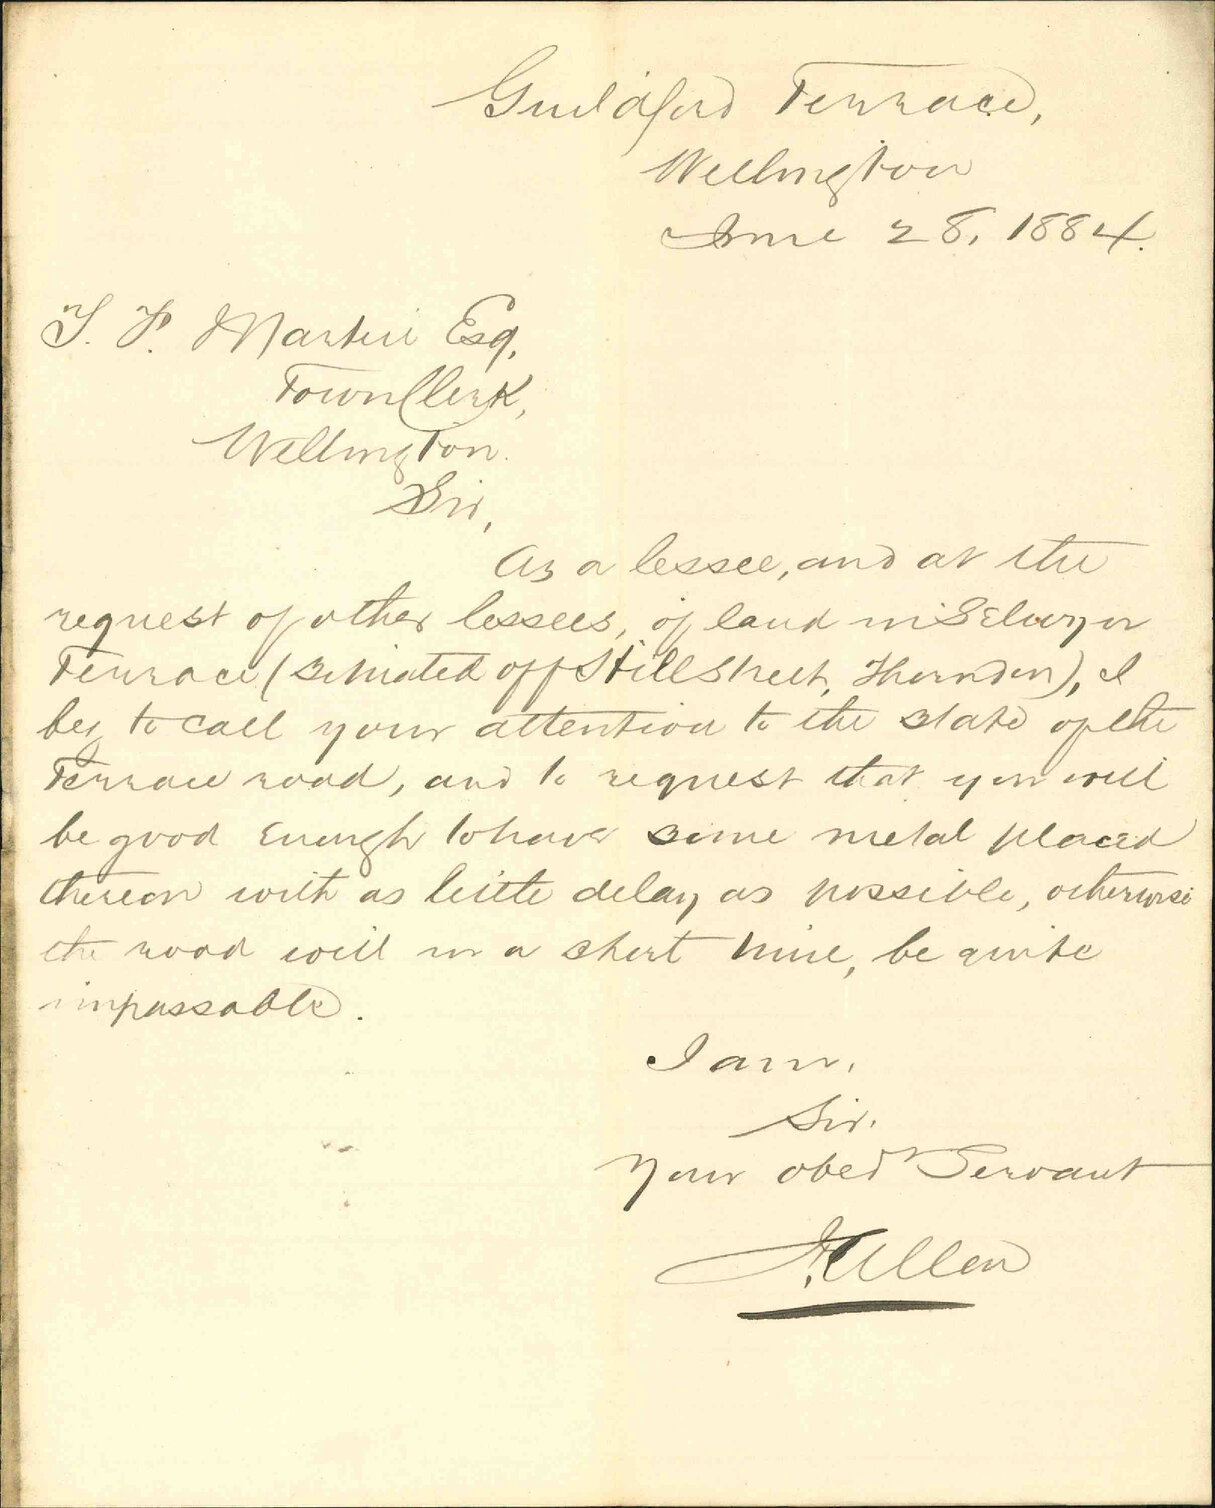 Guildford Terrace,
Wellington
June 28, 1884.
T. F. Martin Esq,
Town Clerk,
Wellington.
Sir,
As a lessee, and at the
request of other lessees, of land in Selwyn
Terrace (situated off Hill Street, Thorndon), I
beg to call your attention to the state of the
Terrace road, and to request that you will
be good enough to have some metal placed
thereon with as little delay as possible, otherwise
the road will in a short time, be quite
impassable.
I am,
Sir.
Your obedt Servant
Allen